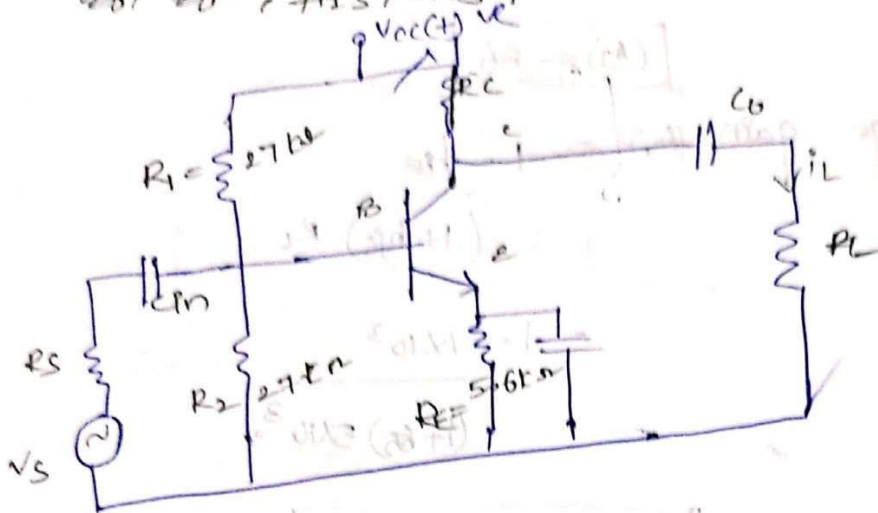 Vcc(+) ve
RC
Co
R1 = 27 kΩ
iL
B
e
RL
Cin
RS
R2 27 kΩ
RE= 5.6k Ω
VS